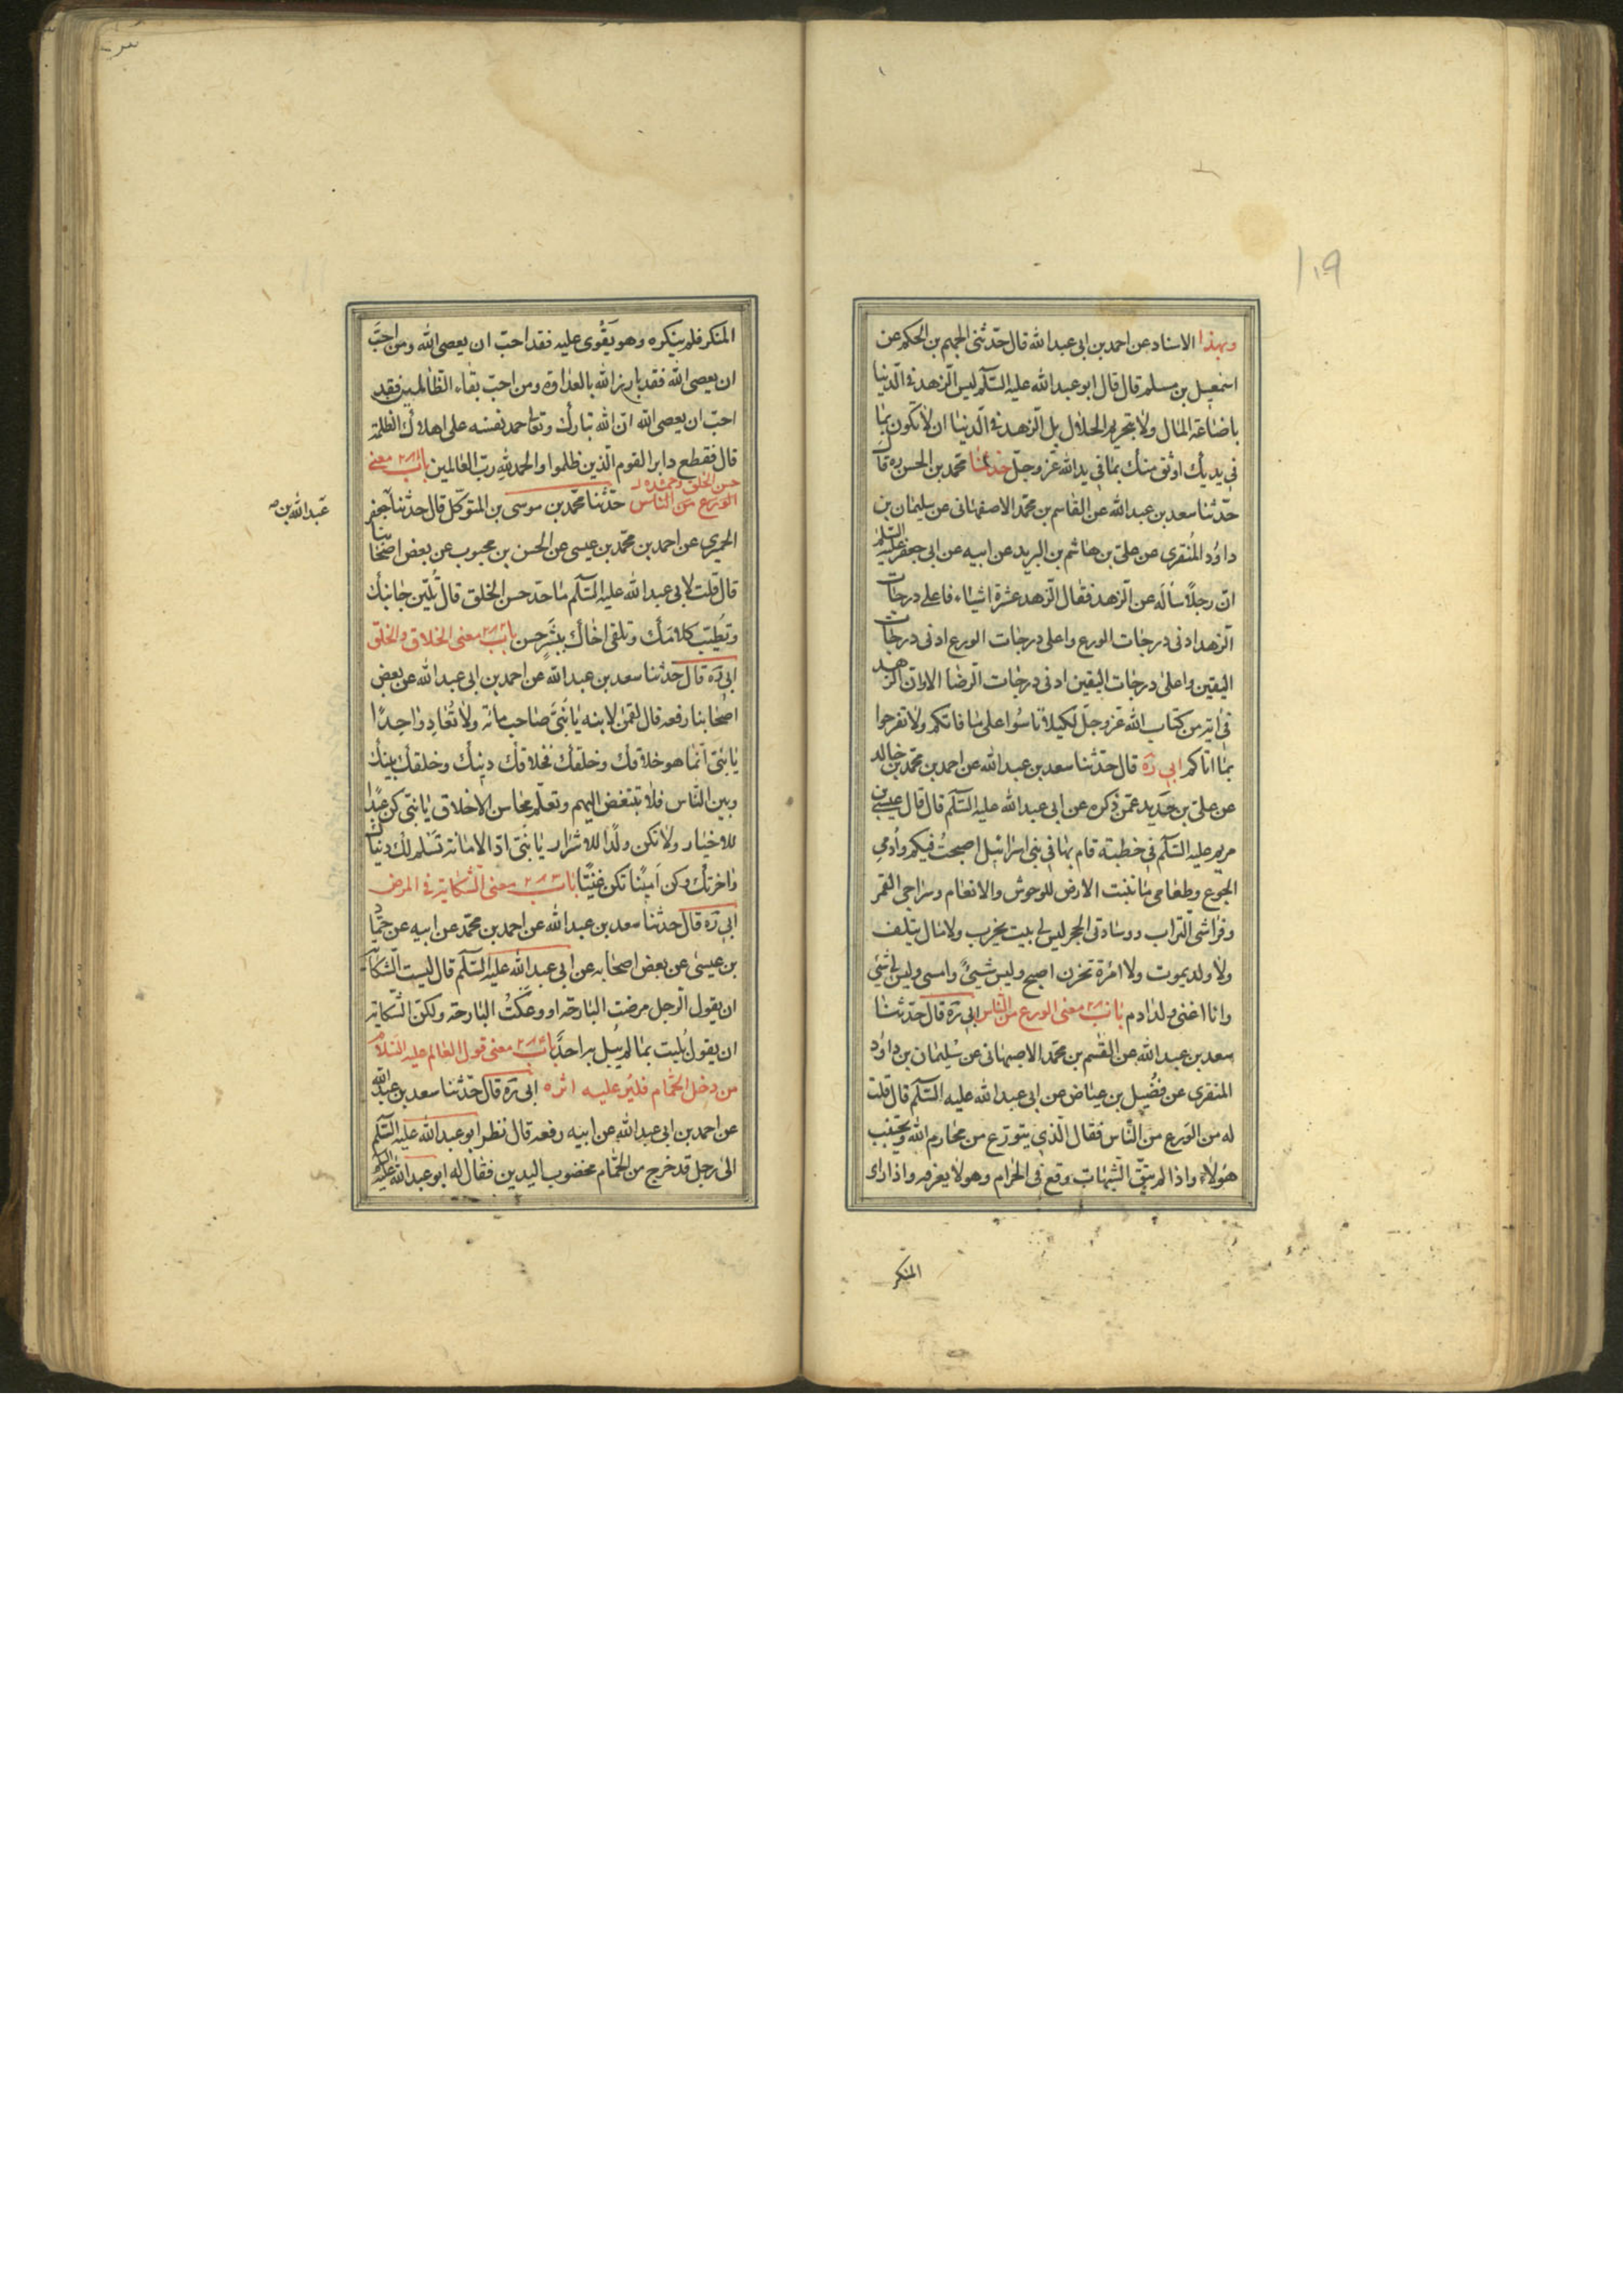 ١٠٩
وبهذا الاسناد عن احمد بن ابى عبد الله قال حدّثنى الجهم بن الحكم عن
اسمعيل بن مسلم قال قال ابو عبد الله عليه السّلم ليس الزّهد فى الدّنيا
باضاعة المال ولا بتحريم الحلال بل الزّهد فى الدّنيا ان لا تكون بما
فى يديك اوثق منك بما فى يد الله عزّ وجلّ حدثنا محمد بن الحسن ره قال
حدّثنا سعد بن عبد الله عن القاسم بن محمّد الاصفهانى عن سليمان بن
داود المنقرى عن علىّ بن هاشم بن البريد عن ابيه عن ابى جعفر عليه السّلم
انّ رجلًا سأله عن الزّهد فقال الزّهد عشرة اشياء فاعلى درجات
الزّهد ادنى درجات الورع واعلى درجات الورع ادنى درجات
اليقين واعلى درجات اليقين ادنى درجات الرّضا الا وان الزّهد
فى اية من كتاب الله عزّ وجلّ لكيلا تاسوا على ما فاتكم ولا تفرحوا
بما اتاكم ابى ره قال حدّثنا سعد بن عبد الله عن احمد بن محمّد بن خالد
عن علىّ بن حديد عمّن ذكره عن ابى عبد الله عليه السّلم قال قال عيسى بن
مريم عليه السّلم فى خطبته قام بها فى بنى اسرائيل اصبحتُ فيكم وأدمى
الجوع وطعامى ما تنبت الارض للوحوش والانعام وسراجى القمر
وفراشى التّراب ووسادتى الحجر ليس لى بيت يخرب ولا مال يتلف
ولا ولد يموت ولا امرة تحزن اصبح وليس شيئ وامسى وليس لى شيئ
وانا اغنى ولد ادم باب ٢٨٠ معنى الورع من النّاس ابى ره قال حدّثنا
سعد بن عبد الله عن القسم بن محمّد الاصبهانى عن سليمان بن داود
المنقرى عن فضيل بن عياض عن ابى عبد الله عليه السّلم قال قلت
له من الورع من النّاس فقال الّذى يتورّع من محارم الله ويجتنب
هؤلاء واذا لم يتّق الشّبهات وقع فى الحرام وهو لا يعرفه واذا راى
المنكر
المنكر فلم ينكره وهو يقوى عليه فقد احبّ ان يعصى الله ومن احبّ
ان يعصى الله فقد بارز الله بالعداوة ومن احبّ بقاء الظّالمين فقد
احبّ ان يعصى الله انّ الله تبارك وتعا حمد نفسه على اهلاك الظلمة
قال فقطع دابر القوم الّذين ظلموا والحمد لله ربّ العالمين باب ٢٨١ معنى
حسن الخلق وحمده
الورع من النّاس حدّثنا محمّد بن موسى بن المتوكّل قال حدّثنا جعفر
عبد الله بن
الحميرى عن احمد بن محمّد بن عيسى عن الحسن بن محبوب عن بعض اصحابنا
قال قلت لابى عبد الله عليه السّلم ما حدّ حسن الخلق قال تُليّن جانبك
وتطيّب كلامك وتلقى اخاك ببشر حسن باب ٢٨٢ معنى الخلاق والخلق
ابى ره قال حدّثنا سعد بن عبد الله عن احمد بن ابى عبد الله عن بعض
اصحابنا رفعه قال لقمن لابنه يا بنىّ صاحب مائة ولا تُعادِ واحدًا
يا بنىّ انّما هو خلاقك وخلقك فخلاقك دينك وخلقك بينك
وبين النّاس فلا تبتغض اليهم وتعلّم محاسن الاخلاق يا بنىّ كن عبدًا
للاخيار ولا تكن ولدًا للاشرار يا بنىّ ادّ الامانة تسلم لك دنياك
واخرتك وكن امينًا تكن غنيًّا باب ٢٨٣ معنى الشّكاية فى المرض
ابى ره قال حدّثنا سعد بن عبد الله عن احمد بن محمّد عن ابيه عن حمّاد
بن عيسى عن بعض اصحابه عن ابى عبد الله عليه السّلم قال ليست الشّكاية
ان يقول الرّجل مرضت البارحة او وعكتُ البارحة ولكنّ الشّكاية
ان يقول بُليت بما لم يبل به احد باب ٢٨٤ معنى قول العالم عليه السّلام
من دخل الحمّام فلير عليه اثره ابى ره قال حدّثنا سعد بن عبد الله
عن احمد بن ابى عبد الله عن ابيه رفعه قال نظر ابو عبد الله عليه السّلم
الى رجل قد خرج من الحمّام مخضوب اليدين فقال له ابو عبد الله عليه السّلم